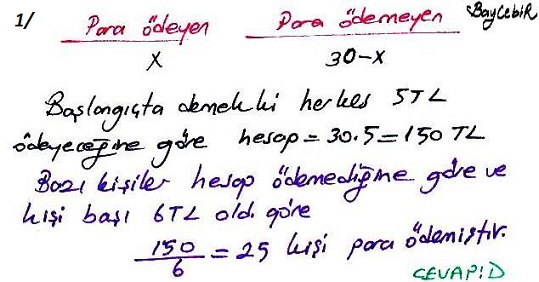 1/ Para ödeyen Para ödemeyen BayCebir
x 30-x
Başlangıçta demekki herkes 5TL
ödeyeceğine göre hesap = 30.5 = 150 TL
Bazı kişiler hesap ödemediğine göre ve
kişi başı 6TL oldı göre
150/6 = 25 kişi para ödemiştir.
CEVAP: D